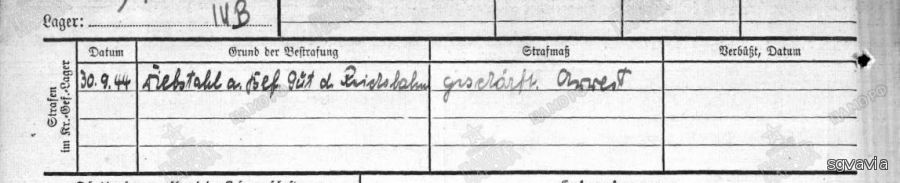 Lager: IV B
Datum Grund der Bestrafung Strafmaß Verbüßt, Datum
Strafen im Kr.-Gef.-Lager
30.9.44 Diebstahl a. Bef. Gut d. Reichsbahn geschärft. Arrest
sgvavia